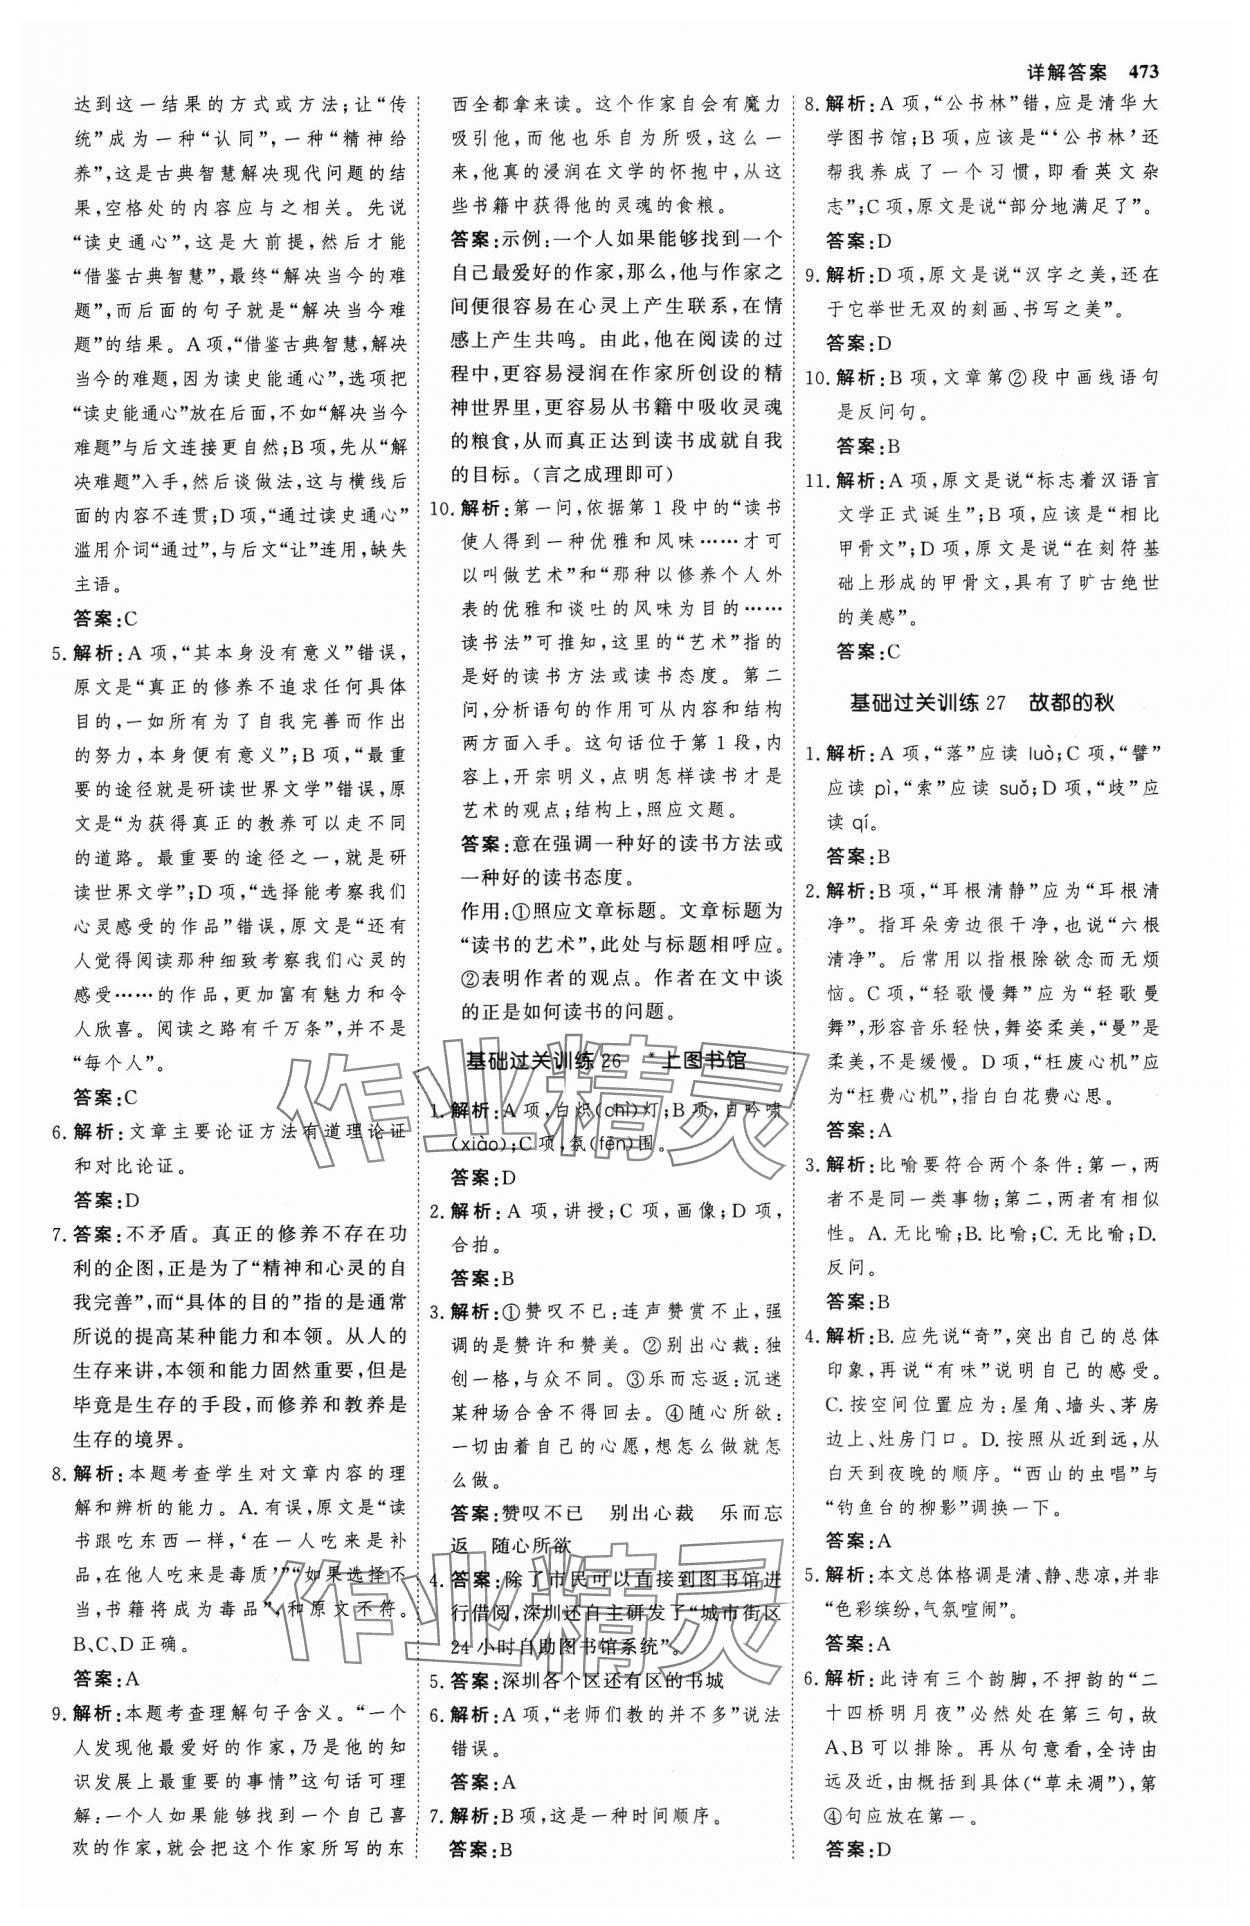 详解答案 473
达到这一结果的方式或方法；让“传
统”成为一种“认同”，一种“精神给
养”，这是古典智慧解决现代问题的结
果，空格处的内容应与之相关。先说
“读史通心”，这是大前提，然后才能
“借鉴古典智慧”，最终“解决当今的难
题”，而后面的句子就是“解决当今难
题”的结果。A项，“借鉴古典智慧，解决
当今的难题，因为读史能通心”，选项把
“读史能通心”放在后面，不如“解决当今
难题”与后文连接更自然；B项，先从“解
决难题”入手，然后谈做法，这与横线后
面的内容不连贯；D项，“通过读史通心”
滥用介词“通过”，与后文“让”连用，缺失
主语。
答案：C
5. 解析：A项，“其本身没有意义”错误，
原文是“真正的修养不追求任何具体
目的，一如所有为了自我完善而作出
的努力，本身便有意义”；B项，“最重
要的途径就是研读世界文学”错误，原
文是“为获得真正的教养可以走不同
的道路。最重要的途径之一，就是研
读世界文学”；D项，“选择能考察我们
心灵感受的作品”错误，原文是“还有
人觉得阅读那种细致考察我们心灵的
感受……的作品，更加富有魅力和令
人欣喜。阅读之路有千万条”，并不是
“每个人”。
答案：C
6. 解析：文章主要论证方法有道理论证
和对比论证。
答案：D
7. 答案：不矛盾。真正的修养不存在功
利的企图，正是为了“精神和心灵的自
我完善”，而“具体的目的”指的是通常
所说的提高某种能力和本领。从人的
生存来讲，本领和能力固然重要，但是
毕竟是生存的手段，而修养和教养是
生存的境界。
8. 解析：本题考查学生对文章内容的理
解和辨析的能力。A.有误，原文是“读
书跟吃东西一样，‘在一人吃来是补
品，在他人吃来是毒质’”“如果选择不
当，书籍将成为毒品”，和原文不符。
B、C、D正确。
答案：A
9. 解析：本题考查理解句子含义。“一个
人发现他最爱好的作家，乃是他的知
识发展上最重要的事情”这句话可理
解：一个人如果能够找到一个自己喜
欢的作家，就会把这个作家所写的东
西全都拿来读。这个作家自会有魔力
吸引他，而他也乐自为所吸，这么一
来，他真的浸润在文学的怀抱中，从这
些书籍中获得他的灵魂的食粮。
答案：示例：一个人如果能够找到一个
自己最爱好的作家，那么，他与作家之
间便很容易在心灵上产生联系，在情
感上产生共鸣。由此，他在阅读的过
程中，更容易浸润在作家所创设的精
神世界里，更容易从书籍中吸收灵魂
的粮食，从而真正达到读书成就自我
的目标。（言之成理即可）
10. 解析：第一问，依据第1段中的“读书
使人得到一种优雅和风味……才可
以叫做艺术”和“那种以修养个人外
表的优雅和谈吐的风味为目的……
读书法”可推知，这里的“艺术”指的
是好的读书方法或读书态度。第二
问，分析语句的作用可从内容和结构
两方面入手。这句话位于第1段，内
容上，开宗明义，点明怎样读书才是
艺术的观点；结构上，照应文题。
答案：意在强调一种好的读书方法或
一种好的读书态度。
作用：①照应文章标题。文章标题为
“读书的艺术”，此处与标题相呼应。
②表明作者的观点。作者在文中谈
的正是如何读书的问题。
基础过关训练26 *上图书馆
1. 解析：A项，白炽(chì)灯；B项，自吟啸
(xiào)；C项，氛(fēn)围。
答案：D
2. 解析：A项，讲授；C项，画像；D项，
合拍。
答案：B
3. 解析：①赞叹不已：连声赞赏不止，强
调的是赞许和赞美。②别出心裁：独
创一格，与众不同。③乐而忘返：沉迷
某种场合舍不得回去。④随心所欲：
一切由着自己的心愿，想怎么做就怎
么做。
答案：赞叹不已 别出心裁 乐而忘
返 随心所欲
4. 答案：除了市民可以直接到图书馆进
行借阅，深圳还自主研发了“城市街区
24小时自助图书馆系统”。
5. 答案：深圳各个区还有区的书城
6. 解析：A项，“老师们教的并不多”说法
错误。
答案：A
7. 解析：B项，这是一种时间顺序。
答案：B
8. 解析：A项，“公书林”错，应是清华大
学图书馆；B项，应该是“‘公书林’还
帮我养成了一个习惯，即看英文杂
志”；C项，原文是说“部分地满足了”。
答案：D
9. 解析：D项，原文是说“汉字之美，还在
于它举世无双的刻画、书写之美”。
答案：D
10. 解析：B项，文章第②段中画线语句
是反问句。
答案：B
11. 解析：A项，原文是说“标志着汉语言
文学正式诞生”；B项，应该是“相比
甲骨文”；D项，原文是说“在刻符基
础上形成的甲骨文，具有了旷古绝世
的美感”。
答案：C
基础过关训练27 故都的秋
1. 解析：A项，“落”应读 luò；C项，“譬”
应读 pì，“索”应读 suǒ；D项，“歧”应
读 qí。
答案：B
2. 解析：B项，“耳根清静”应为“耳根清
净”。指耳朵旁边很干净，也说“六根
清净”。后常用以指根除欲念而无烦
恼。C项，“轻歌慢舞”应为“轻歌曼
舞”，形容音乐轻快，舞姿柔美，“曼”是
柔美，不是缓慢。D项，“枉废心机”应
为“枉费心机”，指白白花费心思。
答案：A
3. 解析：比喻要符合两个条件：第一，两
者不是同一类事物；第二，两者有相似
性。A.无比喻；B.比喻；C.无比喻；D.
反问。
答案：B
4. 解析：B.应先说“奇”，突出自己的总体
印象，再说“有味”说明自己的感受。
C.按空间位置应为：屋角、墙头、茅房
边上、灶房门口。D.按照从近到远，从
白天到夜晚的顺序。“西山的虫唱”与
“钓鱼台的柳影”调换一下。
答案：A
5. 解析：本文总体格调是清、静、悲凉，并非
“色彩缤纷，气氛喧闹”。
答案：A
6. 解析：此诗有三个韵脚，不押韵的“二
十四桥明月夜”必然处在第三句，故
A、B可以排除。再从句意看，全诗由
远及近，由概括到具体（“草未凋”），第
④句应放在第一。
答案：D
作业精灵
作业精灵